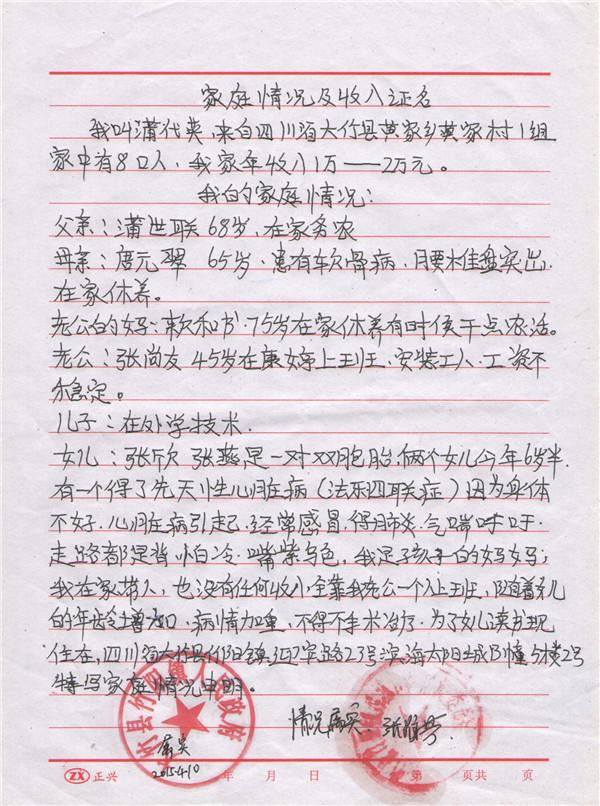 家庭情况及收入证名
我叫蒲代英，来自四川省大竹县黄家乡黄家村1组
家中有8口人，我家年收入1万——2万元。
我的家庭情况：
父亲：蒲世联 68岁，在家务农
母亲：唐元翠 65岁·患有软骨病，腰椎盘突出，
在家休养。
老公的妈：和书·75岁在家休养有时候干点农活。
老公：张尚友 45岁在上班，安装工人·工资不
稳定。
儿子：在外学技术.
女儿：张欣 张燕是一对双胞胎俩个女儿今年6岁半.
有一个得了先天性心脏病（法乐四联症）因为身体
不好·心脏病引起·经常感冒，得肺炎·气喘吁吁·
走路都是背·怕冷·嘴紫乌色，我是孩子的妈妈；
我在家带人，也没有任何收入全靠我老公一个人上班，随着女儿
的年龄增加，病情加重，不得不手术治疗·为了女儿读书现
住在，四川省大竹县竹阳镇迎宾路23号滨海太阳城B幢5楼2号
特写家庭情况申明。
竹阳镇人民政府
情况属实.
属实
2015.4.10
ZX 正兴 年 月 日 第 页共 页